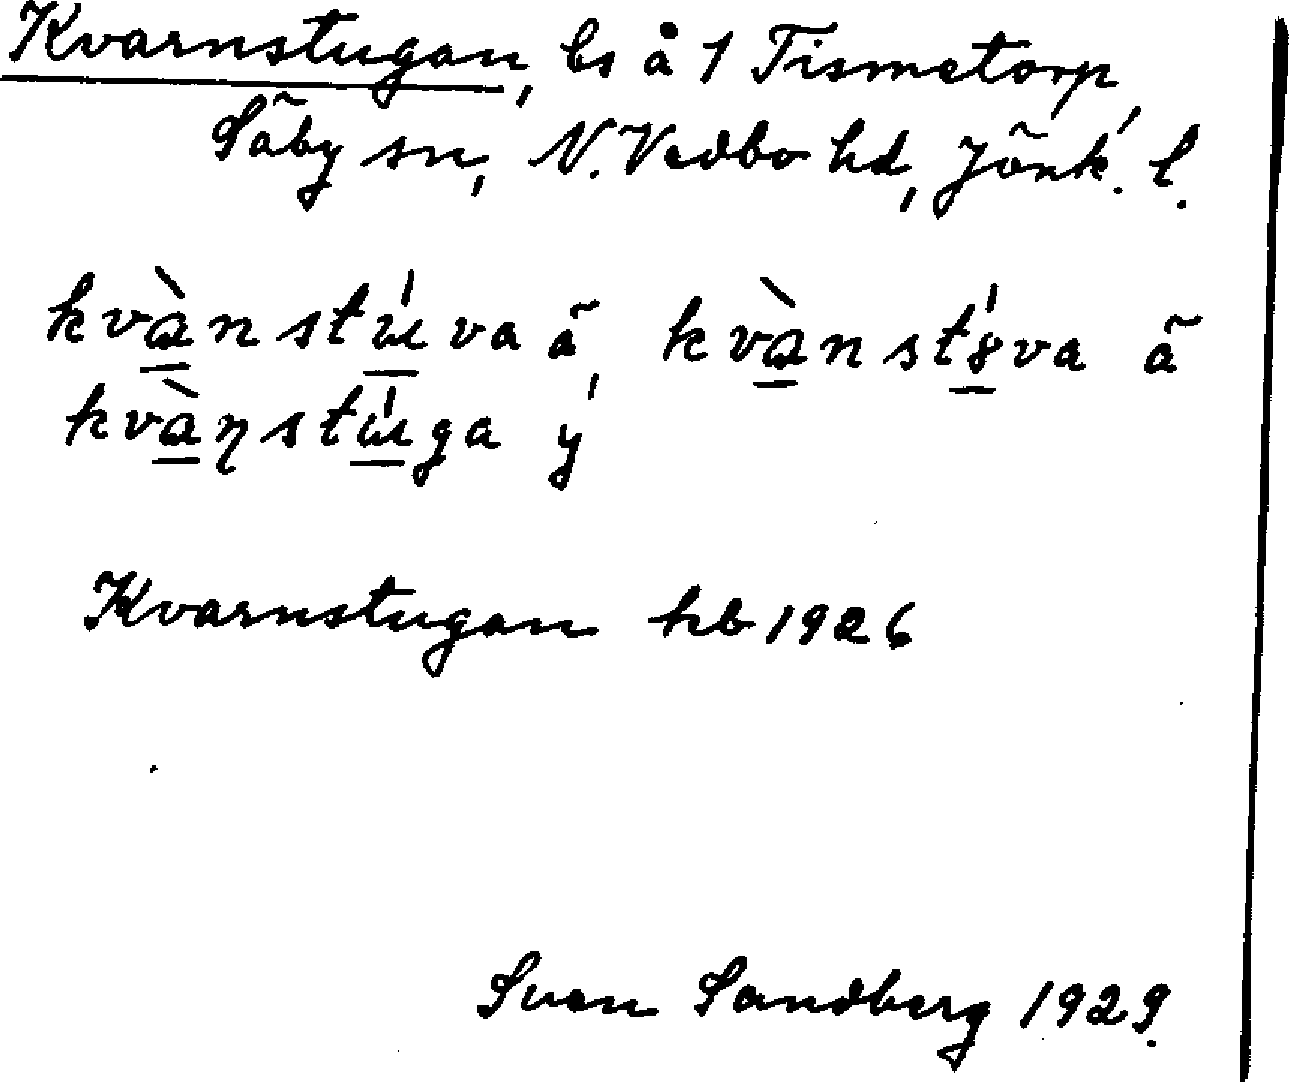 Kvarnstugan, ls å 1 Tismetorp,
Säby sn, N. Vedbo hd, Jönk. l.
kvànstúva ä, kvànst8́va ä
kvàɳstúga y
Kvarnstugan hb 1926
Sven Sandberg 1929.